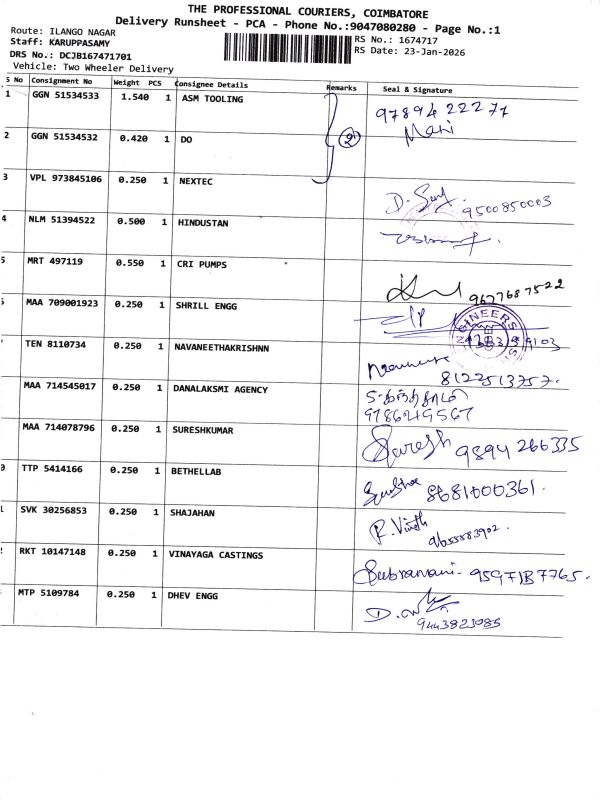 THE PROFESSIONAL COURIERS, COIMBATORE
Delivery Runsheet - PCA - Phone No.:9047080280 - Page No.:1
Route: ILANGO NAGAR
Staff: KARUPPASAMY
DRS No.: DCJB167471701
Vehicle: Two Wheeler Delivery
RS No.: 1674717
RS Date: 23-Jan-2026
S No Consignment No Weight PCS Consignee Details Remarks Seal & Signature
1 GGN 51534533 1.540 1 ASM TOOLING 97894 22277
Mani
2 GGN 51534532 0.420 1 DO 2
3 VPL 973845106 0.250 1 NEXTEC 9500850003
4 NLM 51394522 0.500 1 HINDUSTAN
5 MRT 497119 0.550 1 CRI PUMPS 9677687522
MAA 709001923 0.250 1 SHRILL ENGG
TEN 8110734 0.250 1 NAVANEETHAKRISHNN 8122513757.
MAA 714545017 0.250 1 DANALAKSMI AGENCY
MAA 714078796 0.250 1 SURESHKUMAR Suresh 9894266335
TTP 5414166 0.250 1 BETHELLAB 8681000361.
SVK 30256853 0.250 1 SHAJAHAN R. Vinoth
RKT 10147148 0.250 1 VINAYAGA CASTINGS Subramani-
MTP 5109784 0.250 1 DHEV ENGG 9443823085